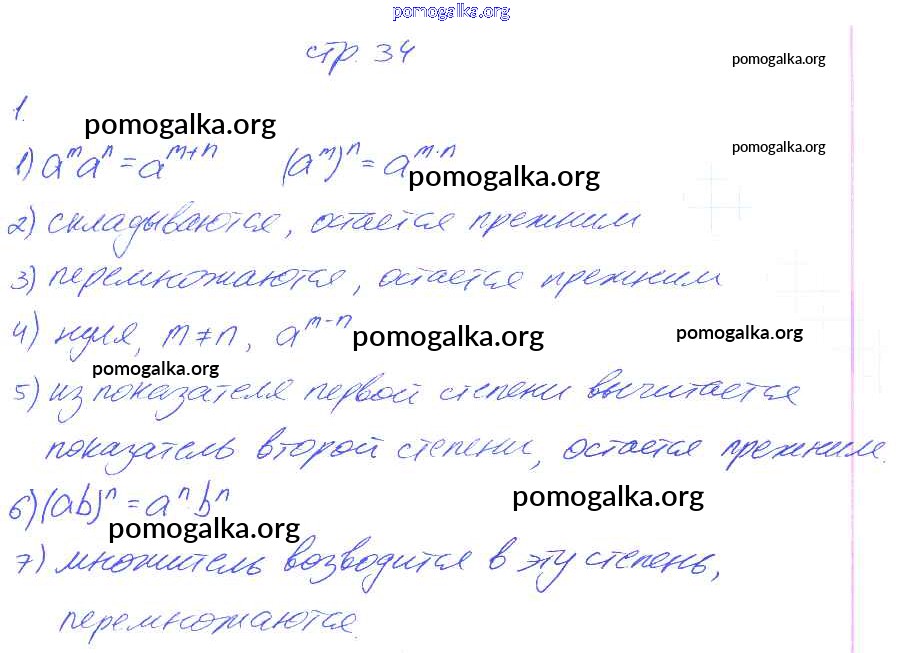 pomogalka.org
стр. 34
pomogalka.org
1.
pomogalka.org
1) aᵐaⁿ = aᵐ⁺ⁿ (aᵐ)ⁿ = aᵐ·ⁿ
pomogalka.org
pomogalka.org
2) складываются, остается прежним
3) перемножаются, остается прежним
4) нуля, m ≠ n, aᵐ⁻ⁿ
pomogalka.org
pomogalka.org
pomogalka.org
5) из показателя первой степени вычитается
показатель второй степени, остается прежним.
6) (ab)ⁿ = aⁿ·bⁿ
pomogalka.org
pomogalka.org
7) множитель возводится в эту степень,
перемножаются.